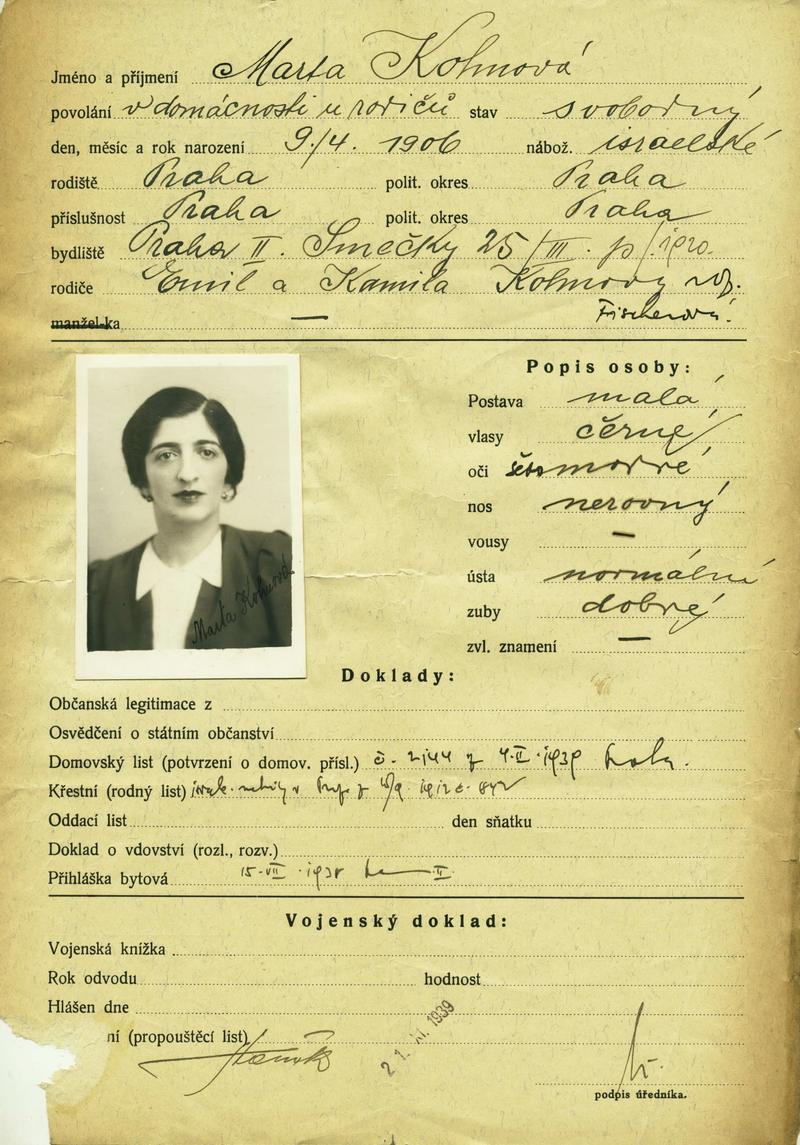 Jméno a příjmení Marta Kohnová
povolání v domácnosti u rodičů stav svobodný
den, měsíc a rok narození 9/4. 1906 nábož. israelské
rodiště Praha polit. okres Praha
příslušnost Praha polit. okres Praha
bydliště Praha II. Smečky 25/III. p/1920.
rodiče Emil a Kamila Kohnovy roz.
manžel-ka — Fischerová.
Popis osoby:
Postava malá
vlasy černé
oči modré
nos nerovný
vousy —
ústa normální
zuby dobré
zvl. znamení —
Marta Kohnová
Doklady:
Občanská legitimace z
Osvědčení o státním občanství
Domovský list (potvrzení o domov. přísl.) č. 2144 z
Křestní (rodný list)
Oddací list den sňatku
Doklad o vdovství (rozl., rozv.)
Přihláška bytová 15. VII. II
Vojenský doklad:
Vojenská knížka
Rok odvodu hodnost
Hlášen dne
ní (propouštěcí list)
1939
podpis úředníka.